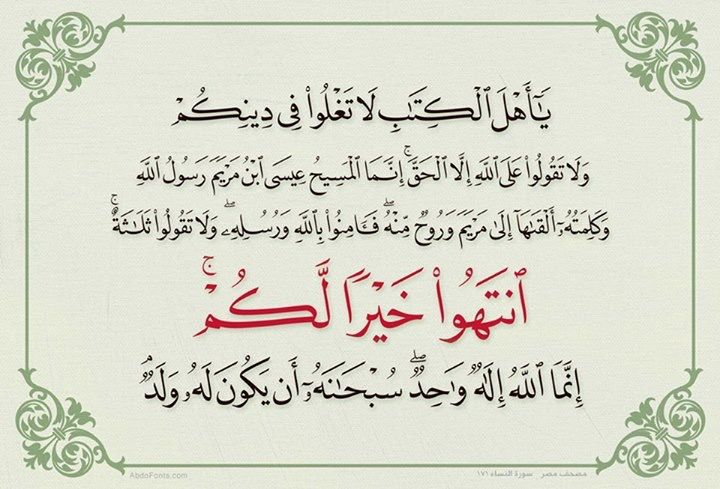 يَٰٓأَهْلَ ٱلْكِتَٰبِ لَا تَغْلُوا۟ فِى دِينِكُمْ
وَلَا تَقُولُوا۟ عَلَى ٱللَّهِ إِلَّا ٱلْحَقَّ ۚ إِنَّمَا ٱلْمَسِيحُ عِيسَى ٱبْنُ مَرْيَمَ رَسُولُ ٱللَّهِ
وَكَلِمَتُهُۥٓ أَلْقَىٰهَآ إِلَىٰ مَرْيَمَ وَرُوحٌ مِّنْهُ ۖ فَـَٔامِنُوا۟ بِٱللَّهِ وَرُسُلِهِۦ ۖ وَلَا تَقُولُوا۟ ثَلَٰثَةٌ ۚ
ٱنتَهُوا۟ خَيْرًا لَّكُمْ ۚ
إِنَّمَا ٱللَّهُ إِلَٰهٌ وَٰحِدٌ ۖ سُبْحَٰنَهُۥٓ أَن يَكُونَ لَهُۥ وَلَدٌ ۘ
مصحف مصر سورة النساء ١٧١
AbdoFonts.com